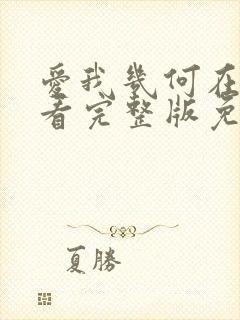 愛我幾何在
看完整版免
夏勝